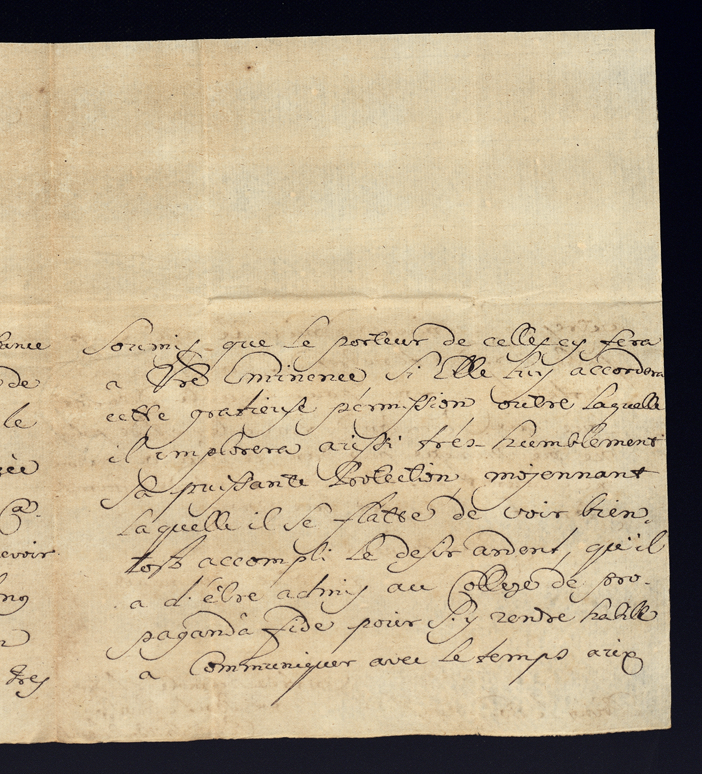 soumis que le porteur de cellescy fera
a Vrē Eminence si Elle luy accordera
cette gratieuse pérmission outre laquelle
il implorera aussi trés-humblement
sa puissante Protection mojennant
laquelle il se flatte de voir bien-
tost accompli le desir ardent, qu'il
a d'être admis au College de pro-
pagandâ fide pour s'y rendre habille
a Communiquer avec le temps aux
de
le
evoir